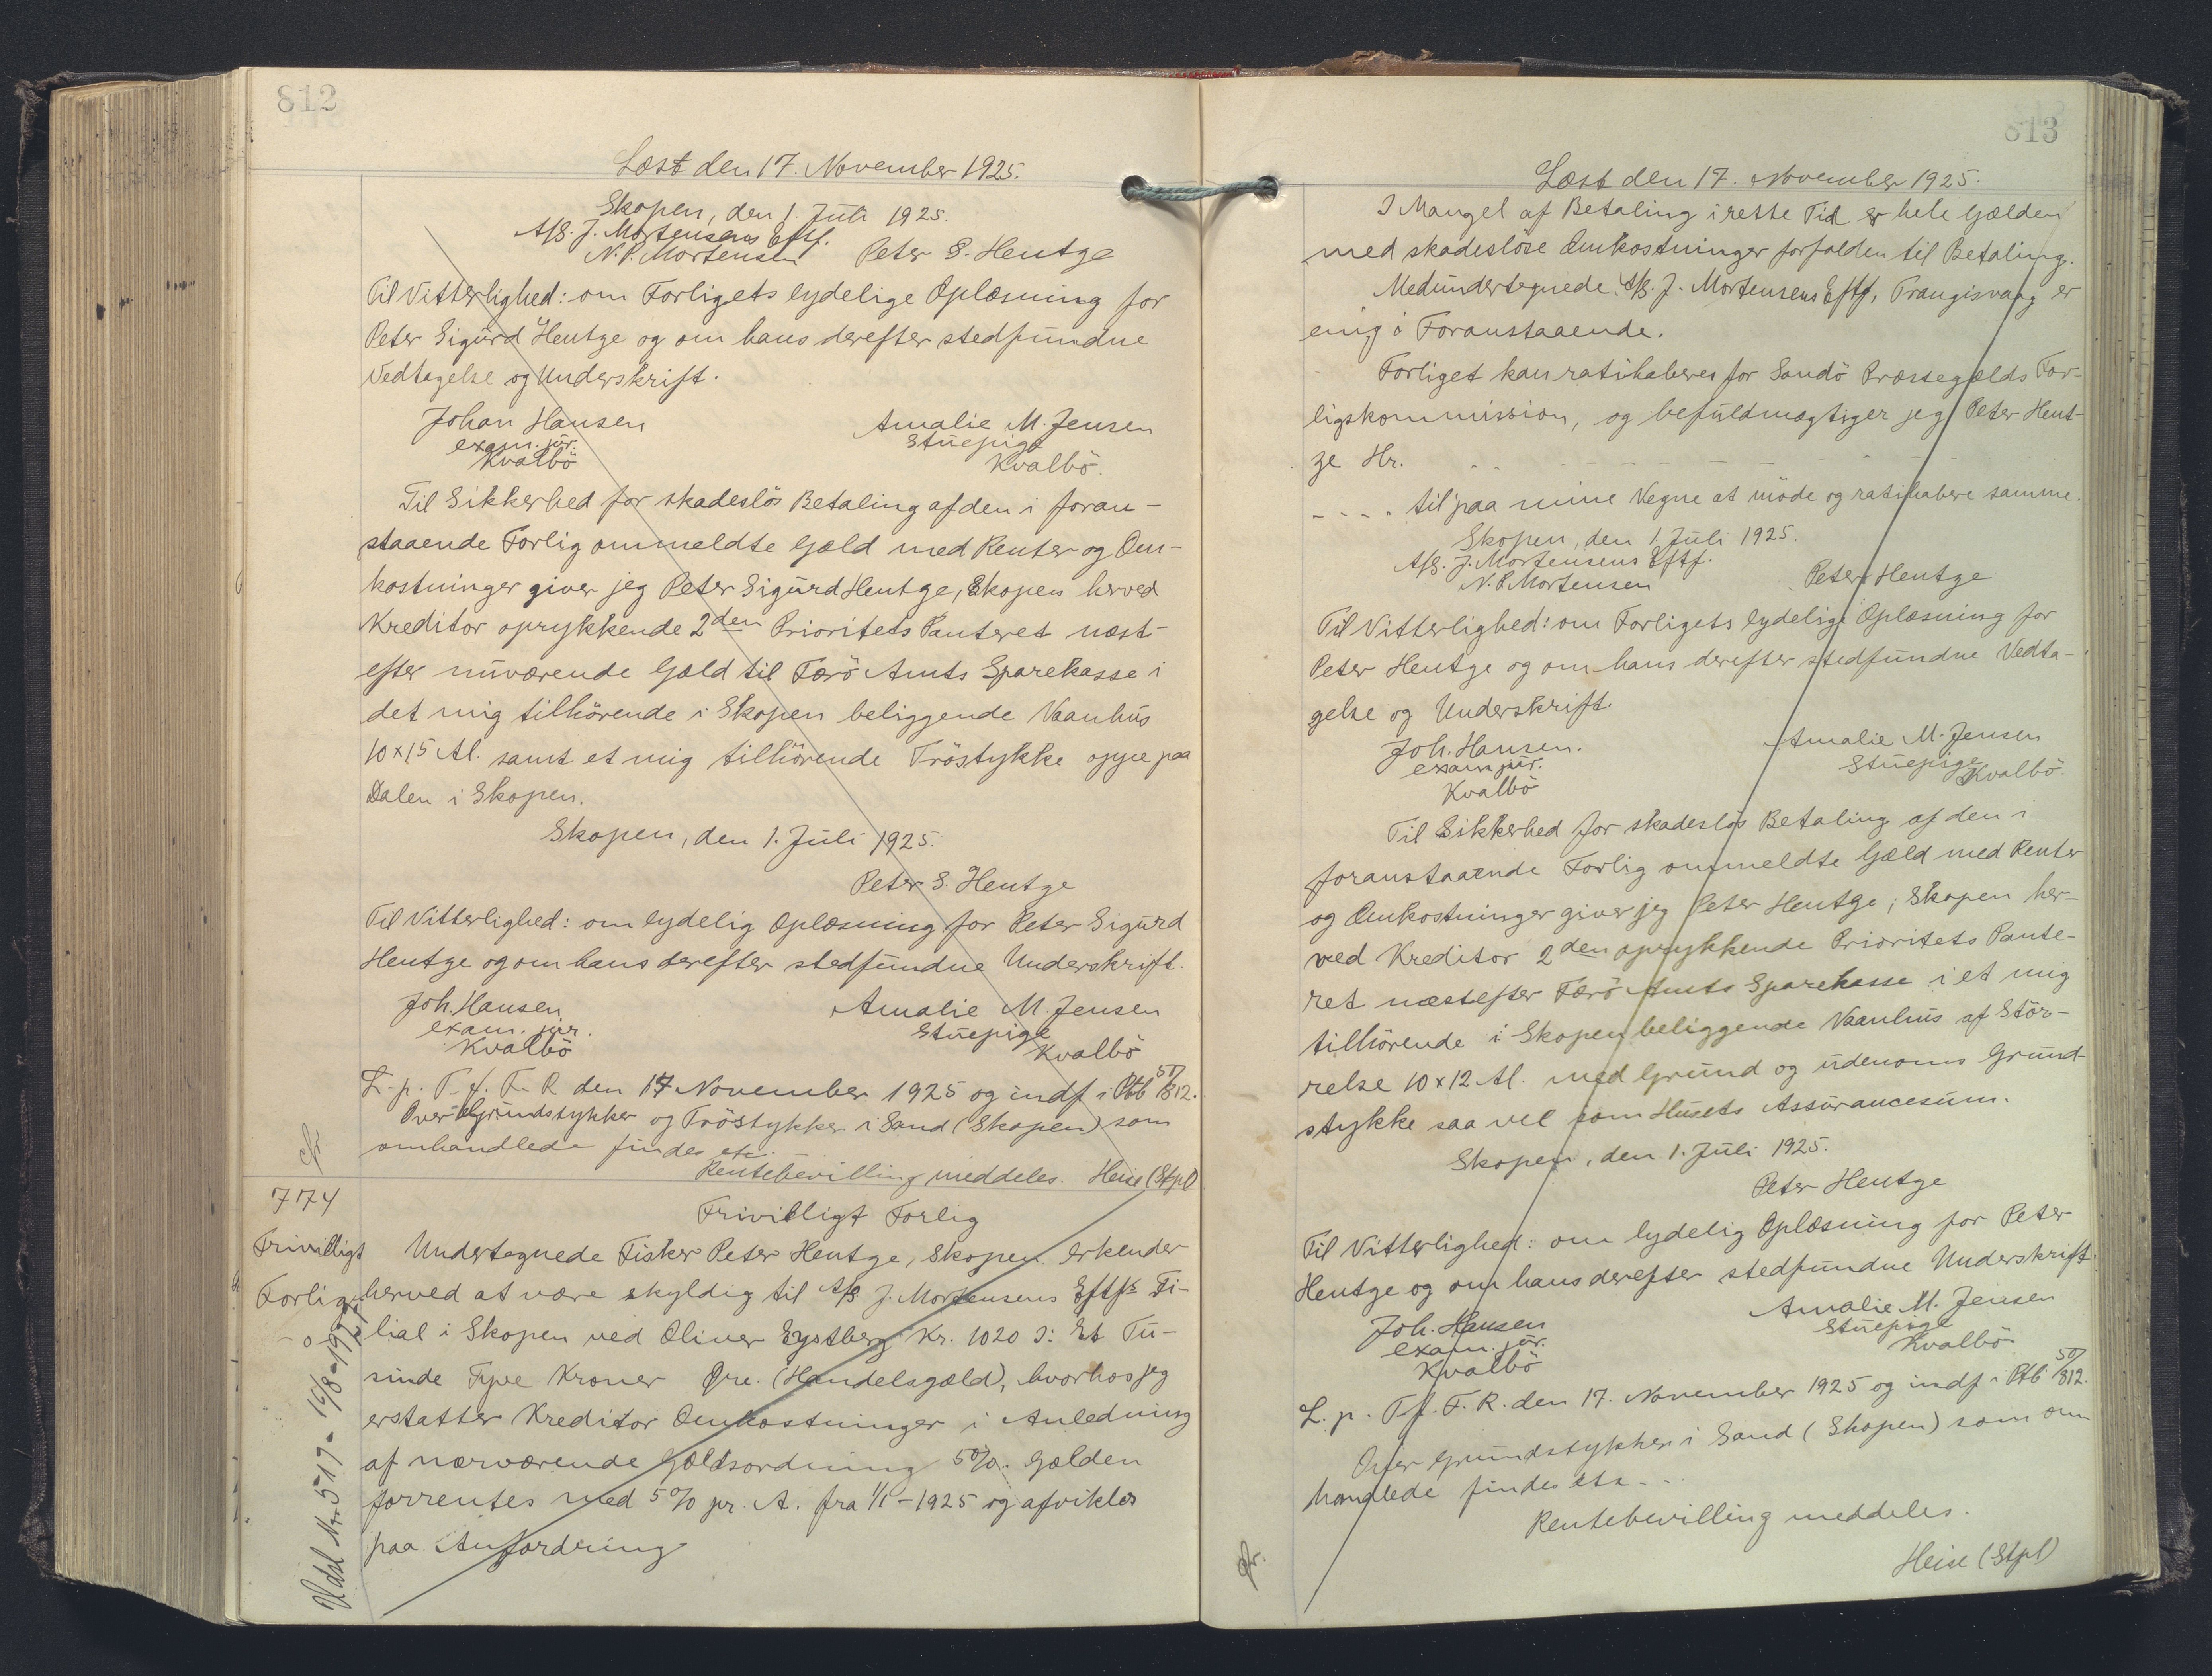 812
Læst den 17. November 1925.
Skopen, den 1. Juli 1925.
A/S. J. Mortensens Eftf.
N. P. Mortensen Peter S. Hentze
Til Vitterlighed: om Forligets lydelige Oplæsning for
Peter Sigurd Hentze og om hans derefter stedfundne
Vedtagelse og Underskrift.
Johan Hansen Amalie M. Jensen
exam. jur. Stuepige
Kvalbö Kvalbö.
Til Sikkerhed for skadeslös Betaling af den i foran-
staaende Forlig ommeldte Gæld med Renter og Om-
kostninger giver jeg Peter Sigurd Hentze, Skopen herved
Kreditor oprykkende 2den Prioritets Panteret næst-
efter nuværende Gæld til Færö Amts Sparekasse i
det mig tilhörende i Skopen beliggende Vaanhus
10 x 15 Al. samt et mig tilhörende Tröstykke oppe paa
Dalen i Skopen.
Skopen, den 1. Juli 1925.
Peter S. Hentze
Til Vitterlighed: om lydelig Oplæsning for Peter Sigurd
Hentze og om hans derefter stedfundne Underskrift.
Joh. Hansen Amalie M. Jensen
exam. jur. Stuepige
Kvalbö Kvalbö
L. p. T. f. F. R den 17 November 1925 og indf i Ptb 50/812.
Over Grundstykker og Tröstykker i Sand (Skopen) som
omhandlede findes etc.
Rentebevilling meddeles. Heise (Stpl)
774
Frivilligt Forlig
Frivilligt
Forlig
- o -
Undertegnede Fisker Peter Hentze, Skopen erkender
herved at være skyldig til A/S J. Mortensens Eftfs Fi-
lial i Skopen ved Oliver Eystberg Kr. 1020 ɔ: Et Tu-
sinde Tyve Kroner Øre. (Handelsgæld), hvorhos jeg
erstatter Kreditor Omkostninger i Anledning
af nærværende Gældsordning 5%. Gælden
forrentes med 5% pr. A. fra 1/1 - 1925 og afvikles
paa Anfordring
Udsl Nr. 519 - 14/8 - 1971
813
Læst den 17. November 1925.
I Mangel af Betaling i rette Tid er hele Gælden
med skadeslöse Omkostninger forfalden til Betaling.
Medundertegnede A/S. J. Mortensens Eftf, Trangisvaag er
enig i Foranstaaende.
Forliget kan ratihaberes for Sandö Præstegælds For-
ligskommission, og befuldmægtiger jeg Peter Hent-
ze Hr. - - - - - -
- - - - til paa mine Vegne at möde og ratihabere samme.
Skopen, den 1. Juli 1925.
A/S. J. Mortensens Eftf.
N. P. Mortensen Peter Hentze
Til Vitterlighed: om Forligets lydelige Oplæsning for
Peter Hentze og om hans derefter stedfundne Vedta-
gelse og Underskrift.
Joh. Hansen. Amalie M. Jensen
exam jur. Stuepige
Kvalbö Kvalbö.
Til Sikkerhed for skadeslös Betaling af den i
foranstaaende Forlig ommeldte Gæld med Renter
og Omkostninger giver jeg Peter Hentze, Skopen her-
ved Kreditor 2den oprykkende Prioritets Pante-
ret næstefter Færö Amts Sparekasse i et mig
tilhörende i Skopen beliggende Vaanhus af Stör-
relse 10 x 12 Al. med Grund og udenoms Grund-
stykke saa vel som Husets Assurancesum.
Skopen, den 1. Juli 1925.
Peter Hentze
Til Vitterlighed: om lydelig Oplæsning for Peter
Hentze og om hans derefter stedfundne Underskrift.
Joh. Hansen Amalie M. Jensen
exam. jur. Stuepige
Kvalbö Kvalbö
L. p. T. f. F. R. den 17. November 1925 og indf i Ptb 50/812.
Over Grundstykker i Sand (Skopen) som om
handlede findes etc - - -
Rentebevilling meddeles.
Heise (Stpl)